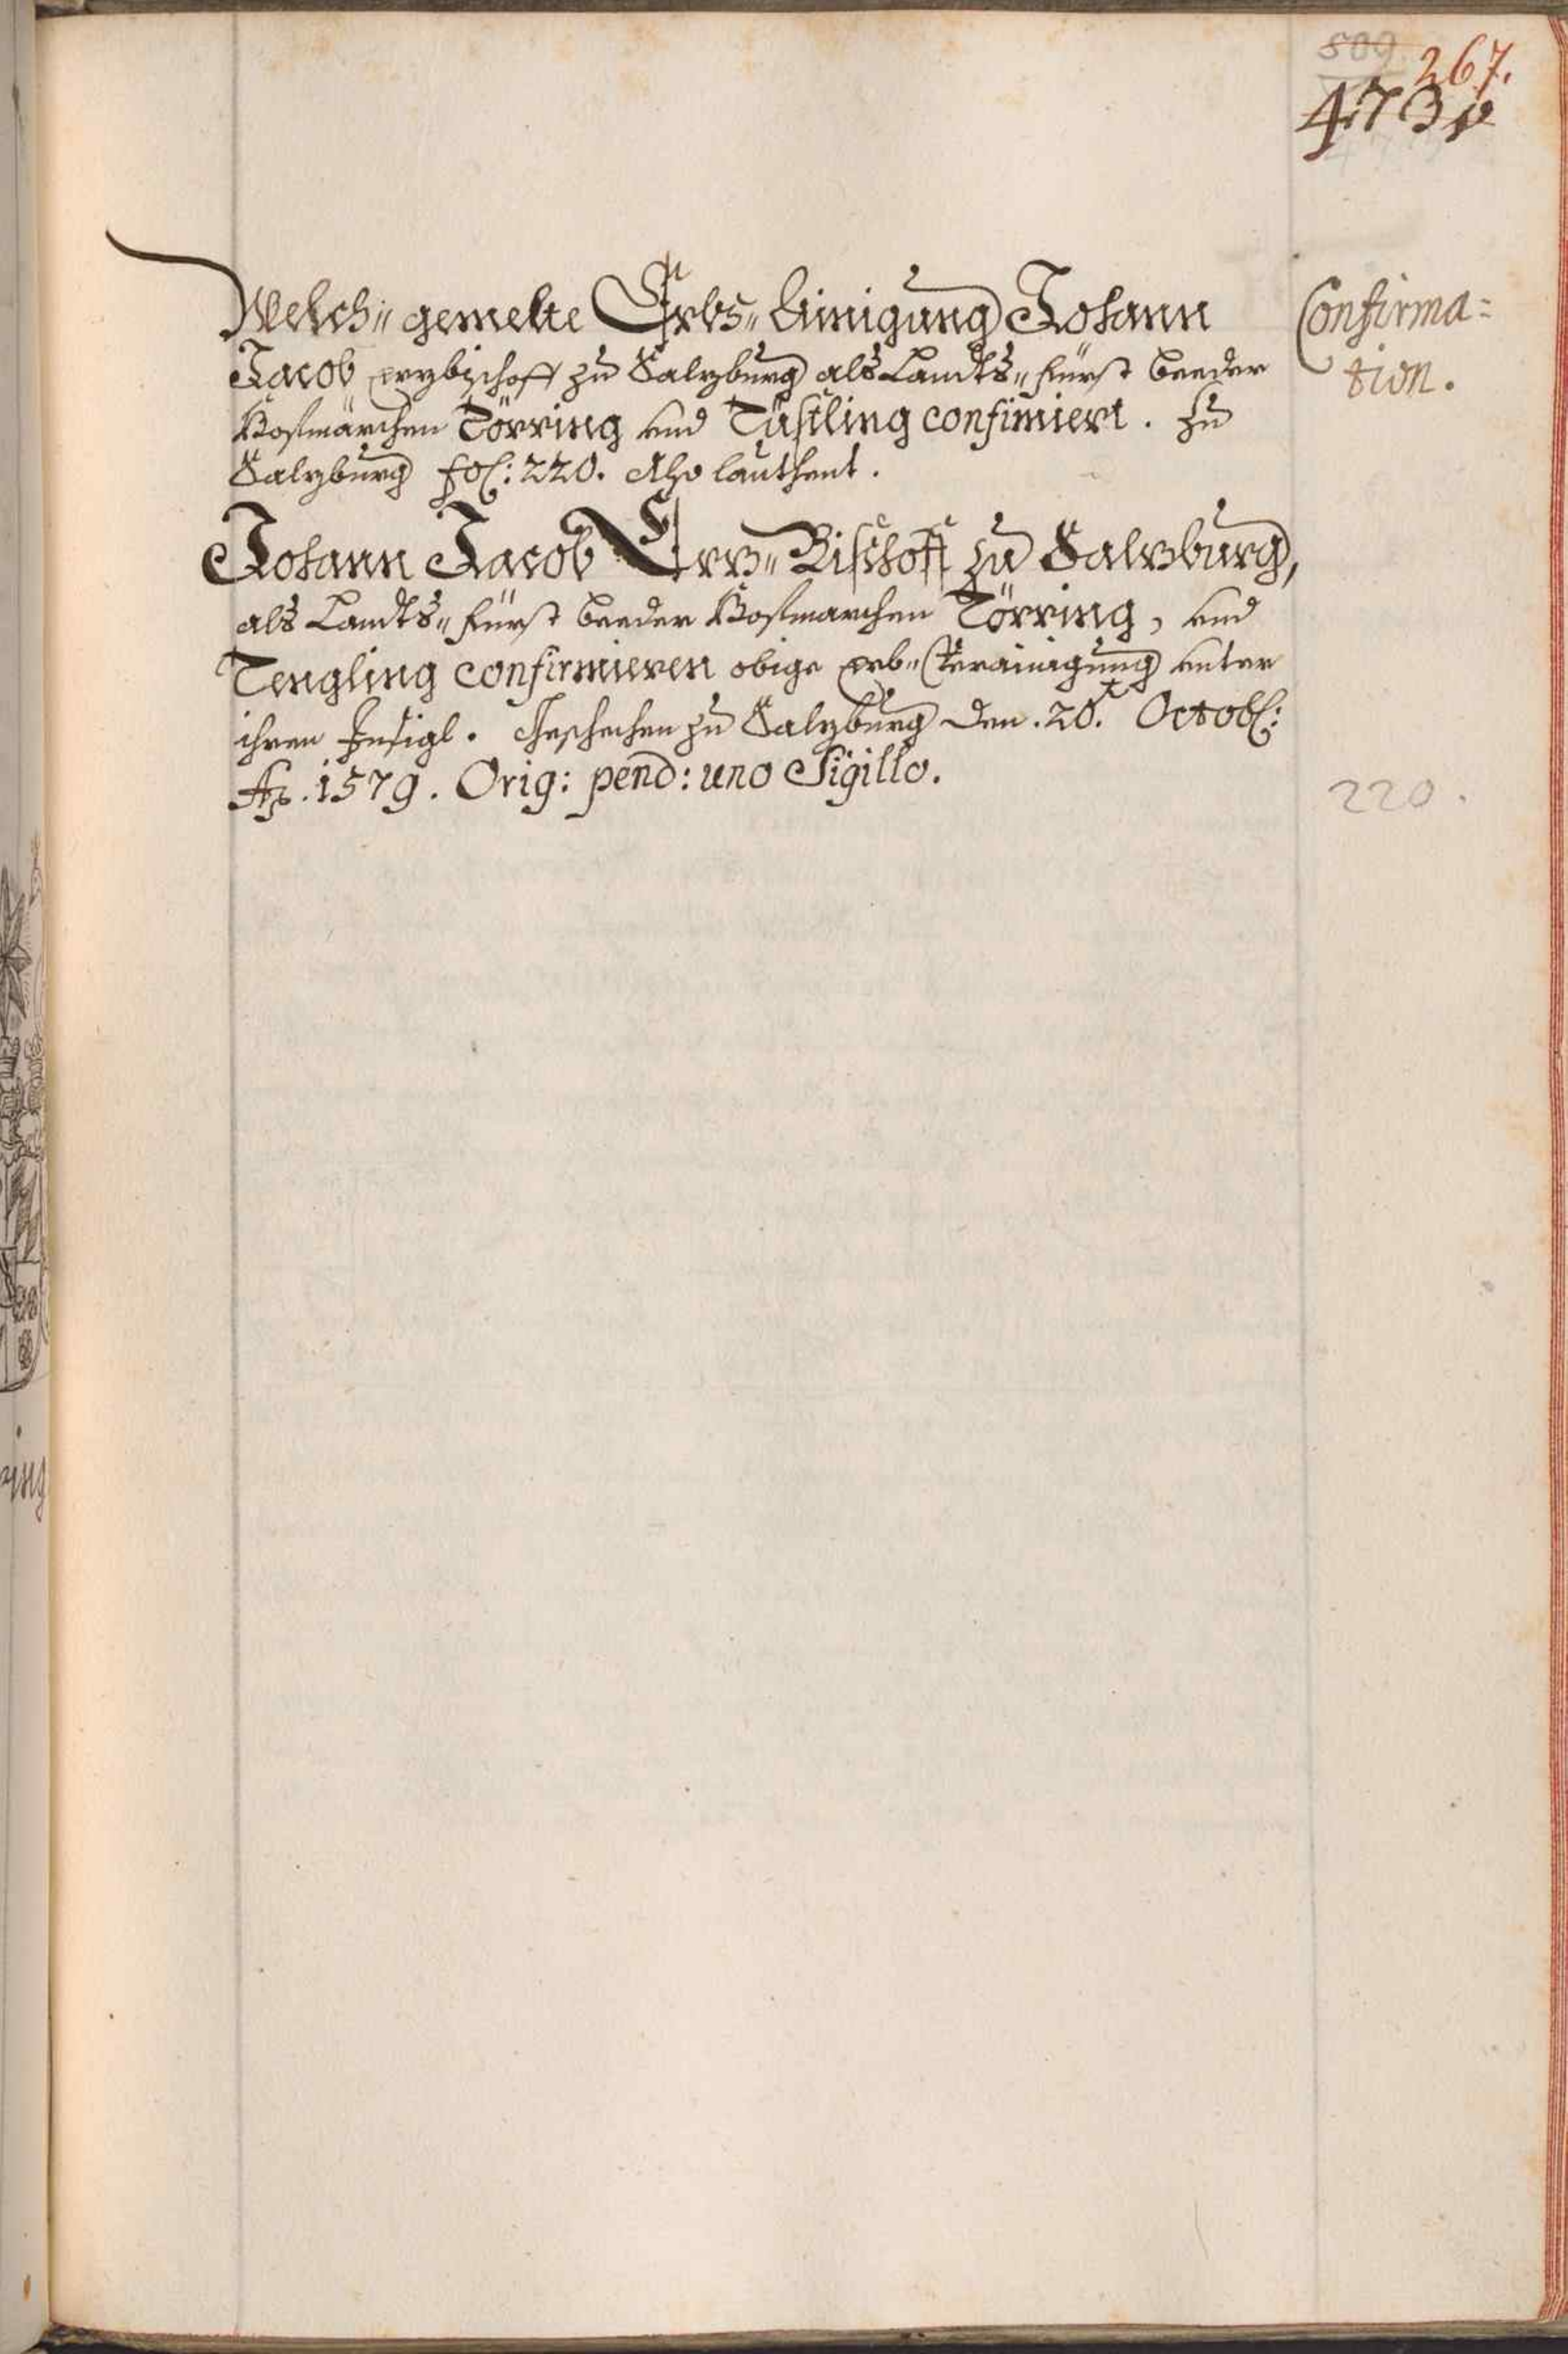 509.
267.
473v
Welch„ gemelte Erbs„ Einigung Johann
Jacob erzbischoff zu Salzburg als Landts„ fürst beeder
Hofmärchen Törring und Tüstling confimiert. Zu
Salzburg fol: 220. Also lauthent.
Johann Jacob Erz„ Bischoff zu Salzburg,
als Landts„ fürst beeder Hofmarchen Törring, und
Tengling confirmieren obige erb„ Verainigung unter
ihren Insigl. Geschechen zu Salzburg den .20.t Octobl:
Ao. 1579. Orig: pend: uno Sigillo.
Confirma=
tion.
220.
ring